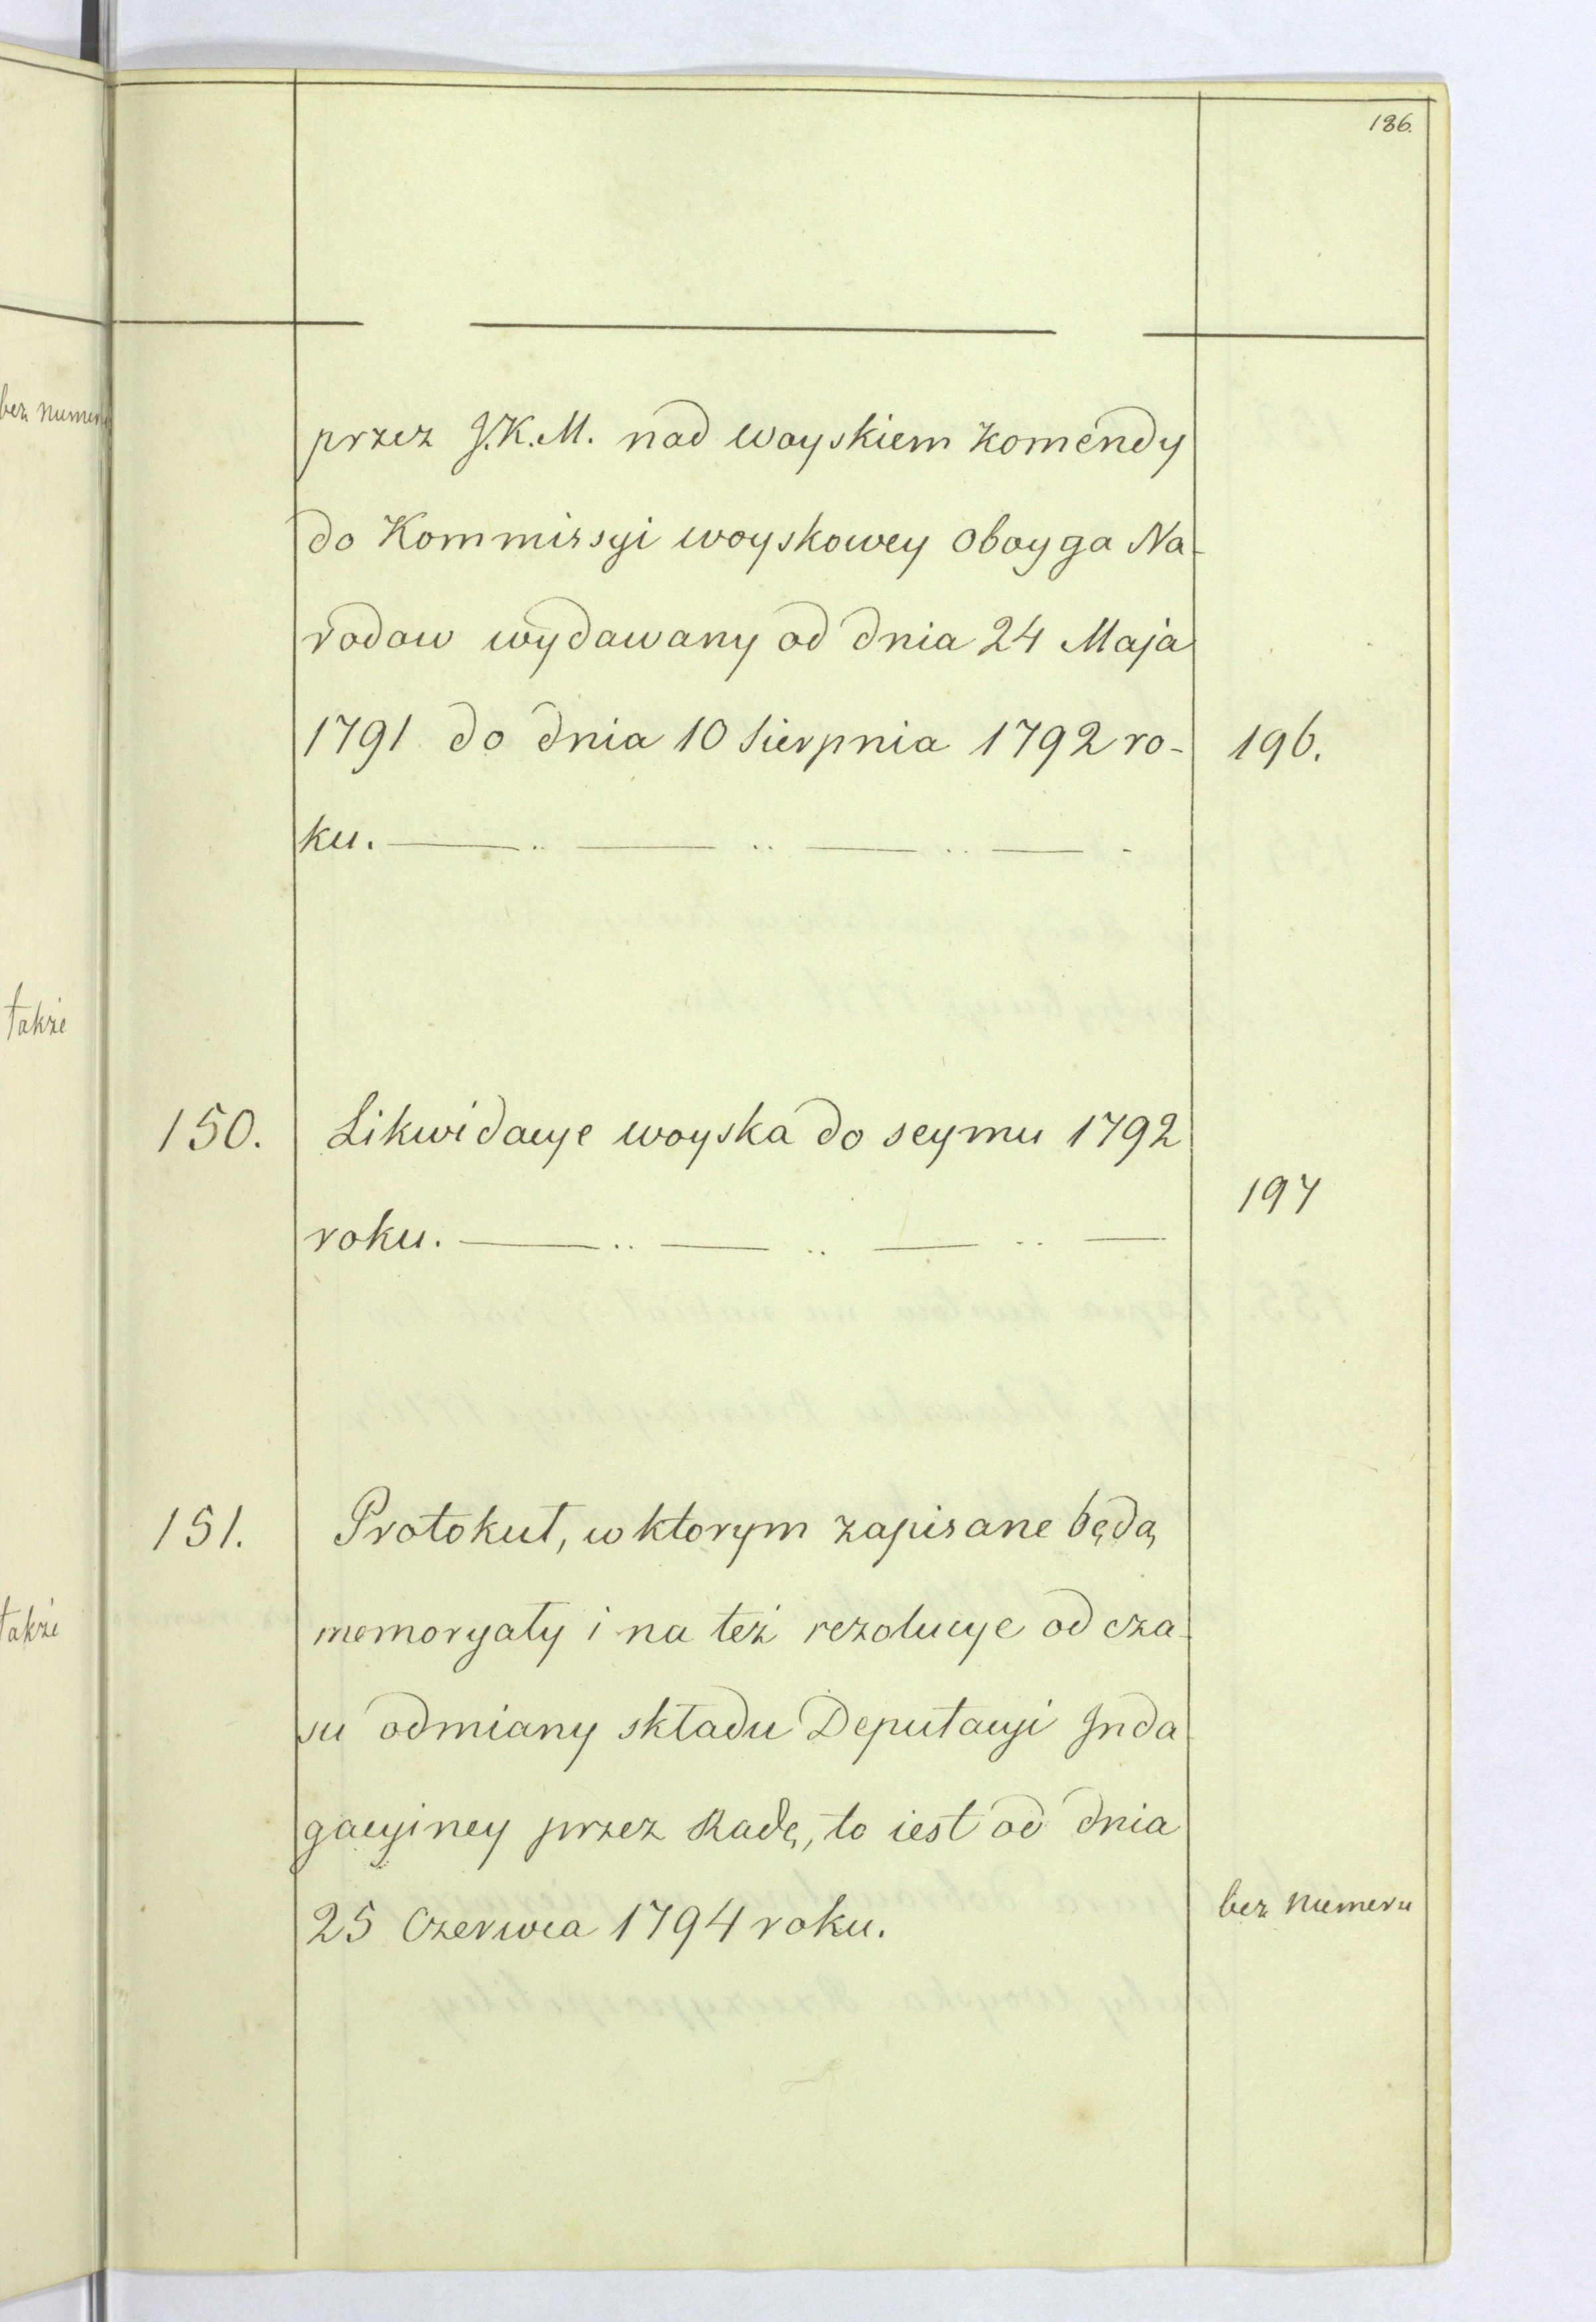 186.
bez numeru
przez J.K.M. nad woyskiem komendy
do Kommissyi woyskowey oboyga Na-
rodow wydawany od dnia 24 Maja
1791 do dnia 10 Sierpnia 1792 ro- 196.
ku. — .. — .. — .. — -
także
150. Likwidacye woyska do seymu 1792
197
roku. — .. — .. — .. —
151. Protokuł, w ktorym zapisane będą
także
memoryały i na też rezolucye od cza-
su odmiany składu Deputacyi Inda
gacyiney przez Radę, to iest od dnia
25 Czerwca 1794 roku. bez numeru